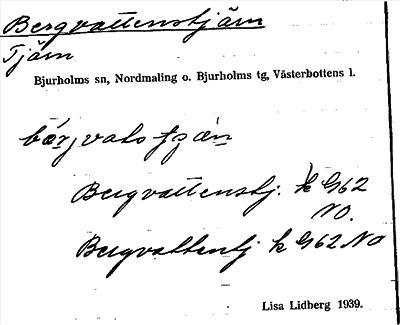 Bergvattenstjärn
Tjärn
Bjurholms sn, Nordmaling o. Bjurholms tg, Västerbottens l.
Bergvattenstj. k G62
NO.
Bergvattentj k G62 NO
Lisa Lidberg 1939.